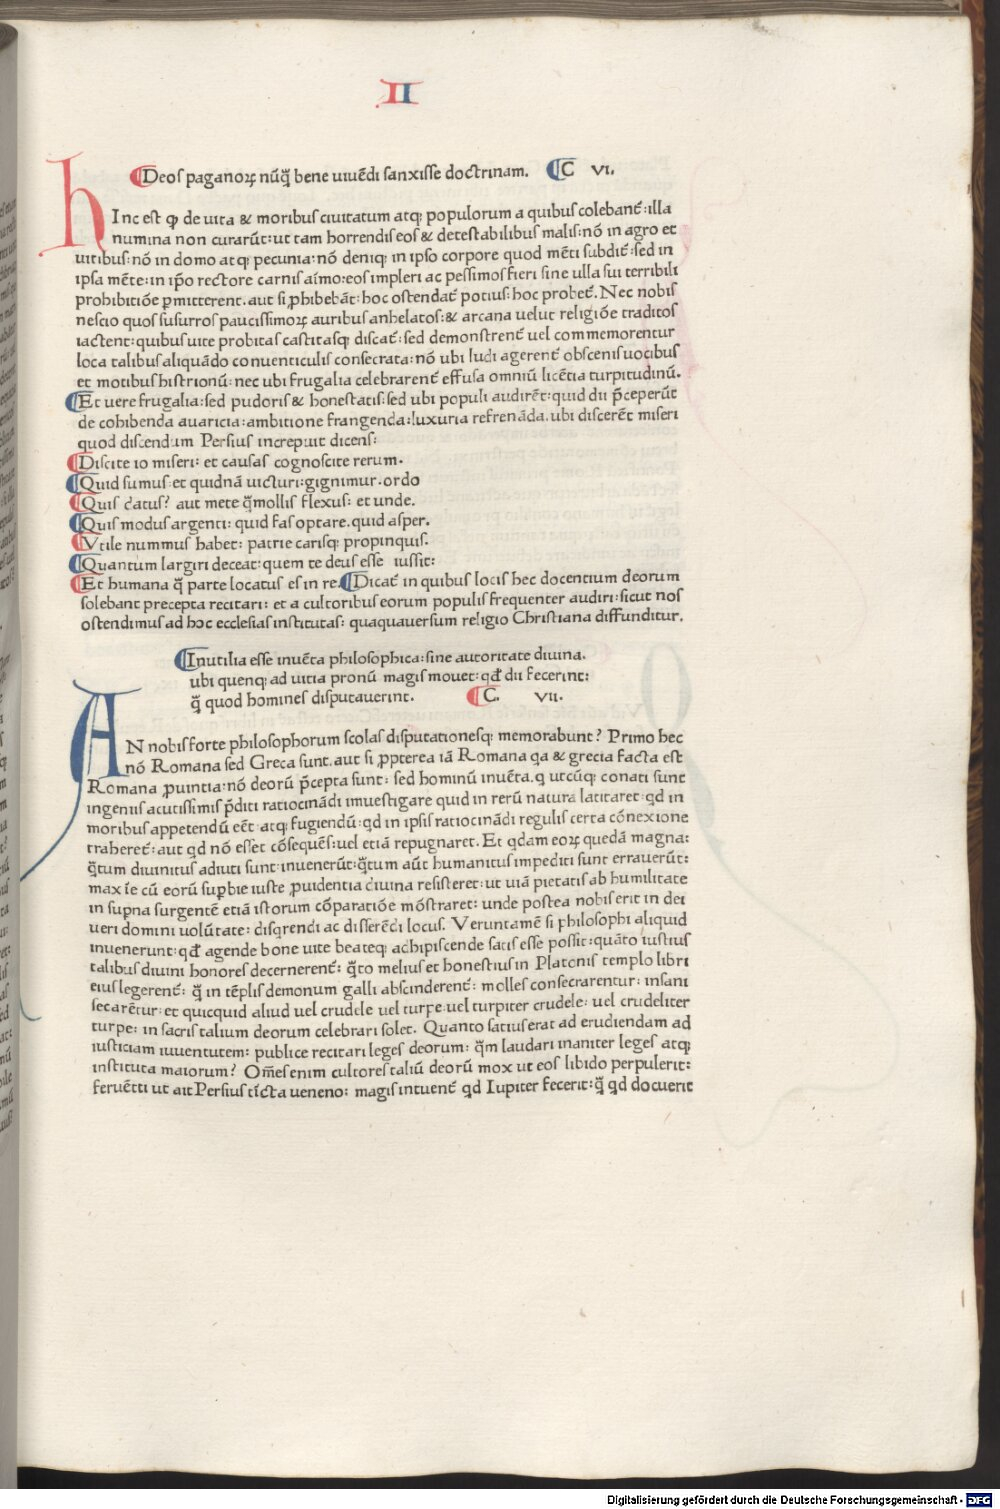 II
Deos paganoꝝ nūq̄ bene uiuēdi sanxisse doctrinam. C VI.
hInc est ꝙ de uita & moribus ciuitatum atq; populorum a quibus colebant̄: illa
numina non curarūt: ut tam horrendis eos & detestabilibus malis: nō in agro et
uitibus: nō in domo atq; pecunia: nō deniq; in ipso corpore quod mēti subdit̄: sed in
ipsa mēte: in ip̄o rectore carnis aīmo: eos impleri ac pessimos fieri sine ulla sui terribili
prohibitiōe ꝑmitterent. aut si ꝓhibebāt: hoc ostendat̄ potius: hoc probet̄. Nec nobis
nescio quos susurros paucissimoꝝ auribus anhelatos: & arcana uelut religiōe traditos
iactent: quibus uite probitas castitasq; discat̄: sed demonstrent̄ uel commemorentur
loca talibus aliquādo conuenticulis consecrata: nō ubi ludi agerent̄ obscenis uocibus
et motibus histrionū: nec ubi frugalia celebrarent̄ effusa omniū licētia turpitudinū.
Et uere frugalia: sed pudoris & honestatis: sed ubi populi audirēt: quid dii p̄ceperūt
de cohibenda auaricia: ambitione frangenda: luxuria refrenāda. ubi discerēt miseri
quod discendum Persius increpuit dicens:
Discite io miseri: et causas cognoscite rerum.
Quid sumus: et quidnā uicturi: gignimur. ordo
Quis datus? aut mete q̄mollis flexus: et unde.
Quis modus argenti: quid fas optare. quid asper.
Vtile nummus habet: patrie carisq; propinquis.
Quantum largiri deceat: quem te deus esse iussit:
Et humana q̄ parte locatus es in re. Dicat̄ in quibus locis hec docentium deorum
solebant precepta recitari: et a cultoribus eorum populis frequenter audiri: sicut nos
ostendimus ad hoc ecclesias institutas: quaquauersum religio Christiana diffunditur.
Inutilia esse inuēta philosophica: sine autoritate diuina.
ubi quenq; ad uitia pronū magis mouet: qd̄ dii fecerint:
q̄ quod homines disputauerint. C. VII.
AN nobis forte philosophorum scolas disputationesq; memorabunt? Primo hec
nō Romana sed Greca sunt. aut si ꝓpterea iā Romana qa & grecia facta est
Romana ꝓuintia: nō deorū p̄cepta sunt: sed hominū inuēta. q utcūq; conati sunt
ingeniis acutissimis p̄diti ratiocinādi inuestigare quid in rerū natura latitaret: qd in
moribus appetendū eēt: atq; fugiendū: qd in ipsis ratiocinādi regulis certa cōnexione
traheret̄: aut qd nō esset cōsequēs: uel etiā repugnaret. Et qdam eoꝝ quedā magna:
q̄tum diuinitus adiuti sunt: inuenerūt: q̄tum aūt humanitus impediti sunt errauerūt:
maxīe cū eorū suꝑbie iuste ꝓuidentia diuina resisteret: ut uiā pietatis ab humilitate
in suꝑna surgentē etiā istorum cōparatiōe mōstraret: unde postea nobis erit in dei
ueri domini uolūtate: disqrendi ac disserēdi locus. Veruntamē si philosophi aliquid
inuenerunt: qd̄ agende bone uite beateq; adhipiscende satis esse possit: quāto iustius
talibus diuini honores decernerent̄: q̄to melius et honestius in Platonis templo libri
eius legerent̄: q̄ in tēplis demonum galli abscinderent̄: molles consecrarentur: insani
secarētur: et quicquid aliud uel crudele uel turpe: uel turpiter crudele: uel crudeliter
turpe: in sacris talium deorum celebrari solet. Quanto satius erat ad erudiendam ad
iusticiam iuuentutem: publice recitari leges deorum: q̄m laudari inaniter leges atq;
instituta maiorum? Om̄es enim cultores taliū deorū mox ut eos libido perpulerit:
feruētti ut ait Persius tīcta ueneno: magis intuent̄ qd Iupiter fecerit: q̄ qd docuerit
Digitalisierung gefördert durch die Deutsche Forschungsgemeinschaft - DFG